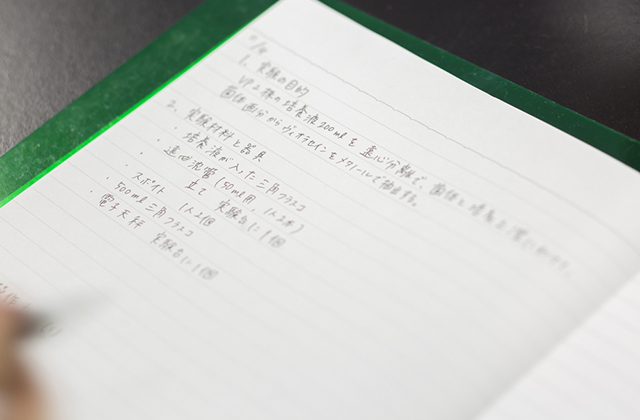 1. 実験の目的
VP2株の培養液200mlを遠心分離で、菌体と培養上清に分け、
菌体画分からヴィオラセインをメタノールで抽出する。
2. 実験材料と器具
・培養液が入った三角フラスコ
・遠心沈管(50ml用、1人2本)
立て 実験台に1個
・スポイト 1人2個
・500ml三角フラスコ
・電子天秤 実験台に1個